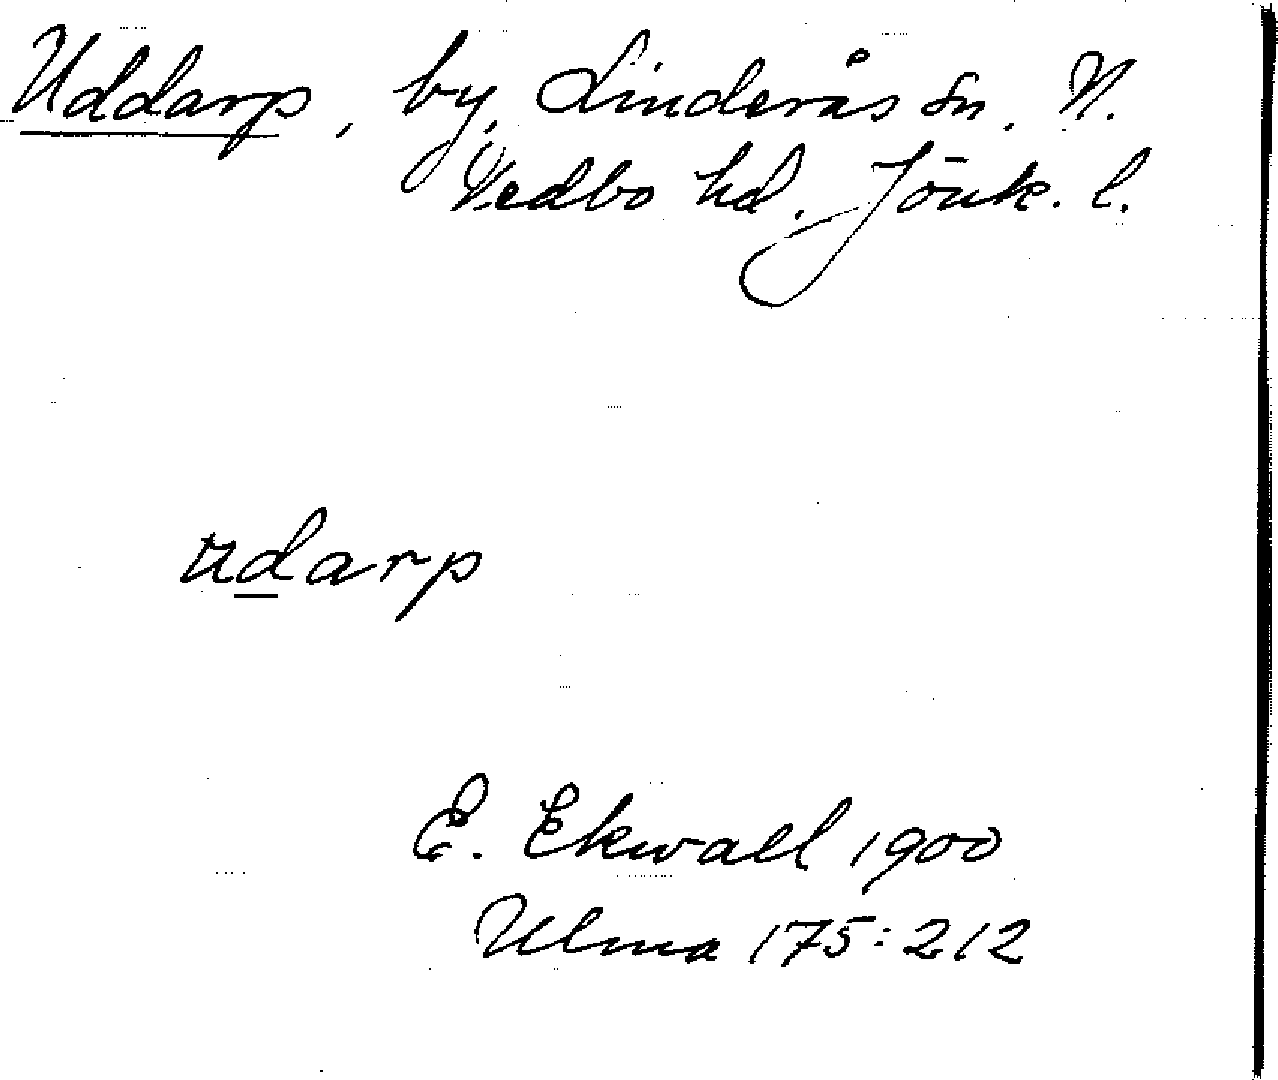 Uddarp, by, Linderås sn. N.
Vedbo hd. Jönk. l.
udarp
E. Ekwall 1900
Ulma 175:212